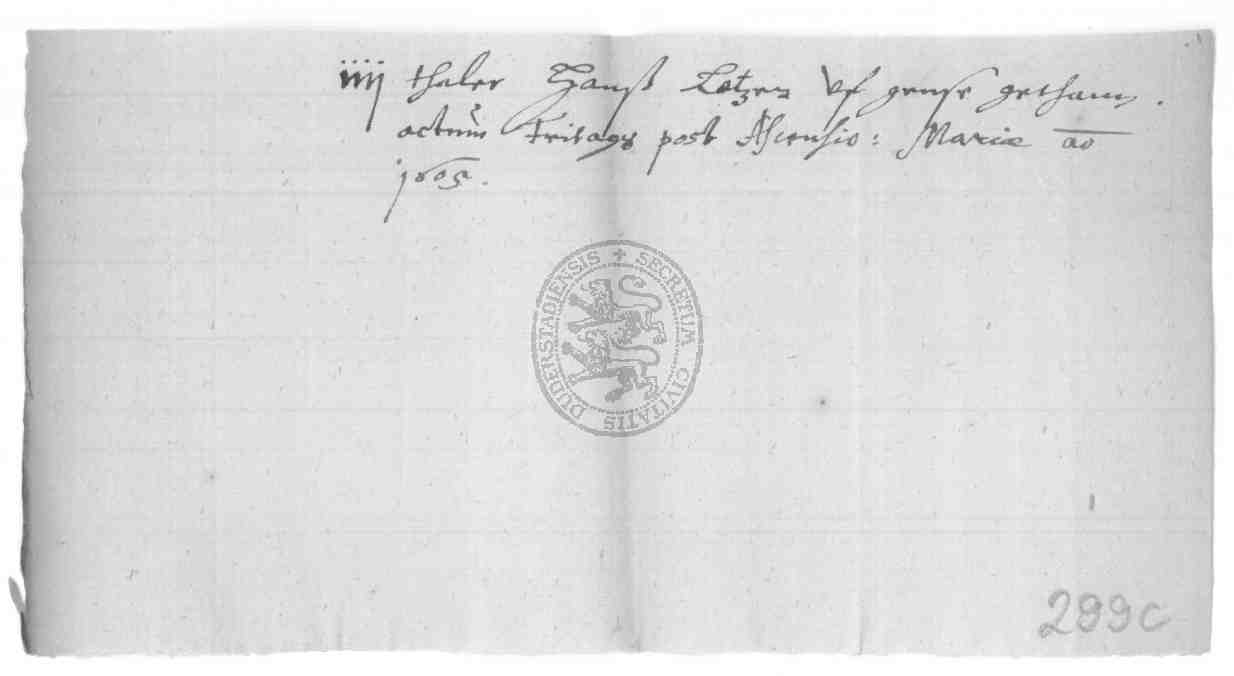 iiij thaler Hanß Letzer Vf gense gethann.
actum Fritags post Ascensio: Mariæ ao
1605.
SECRETUM CIVITATIS DUDERSTADIENSIS
299c